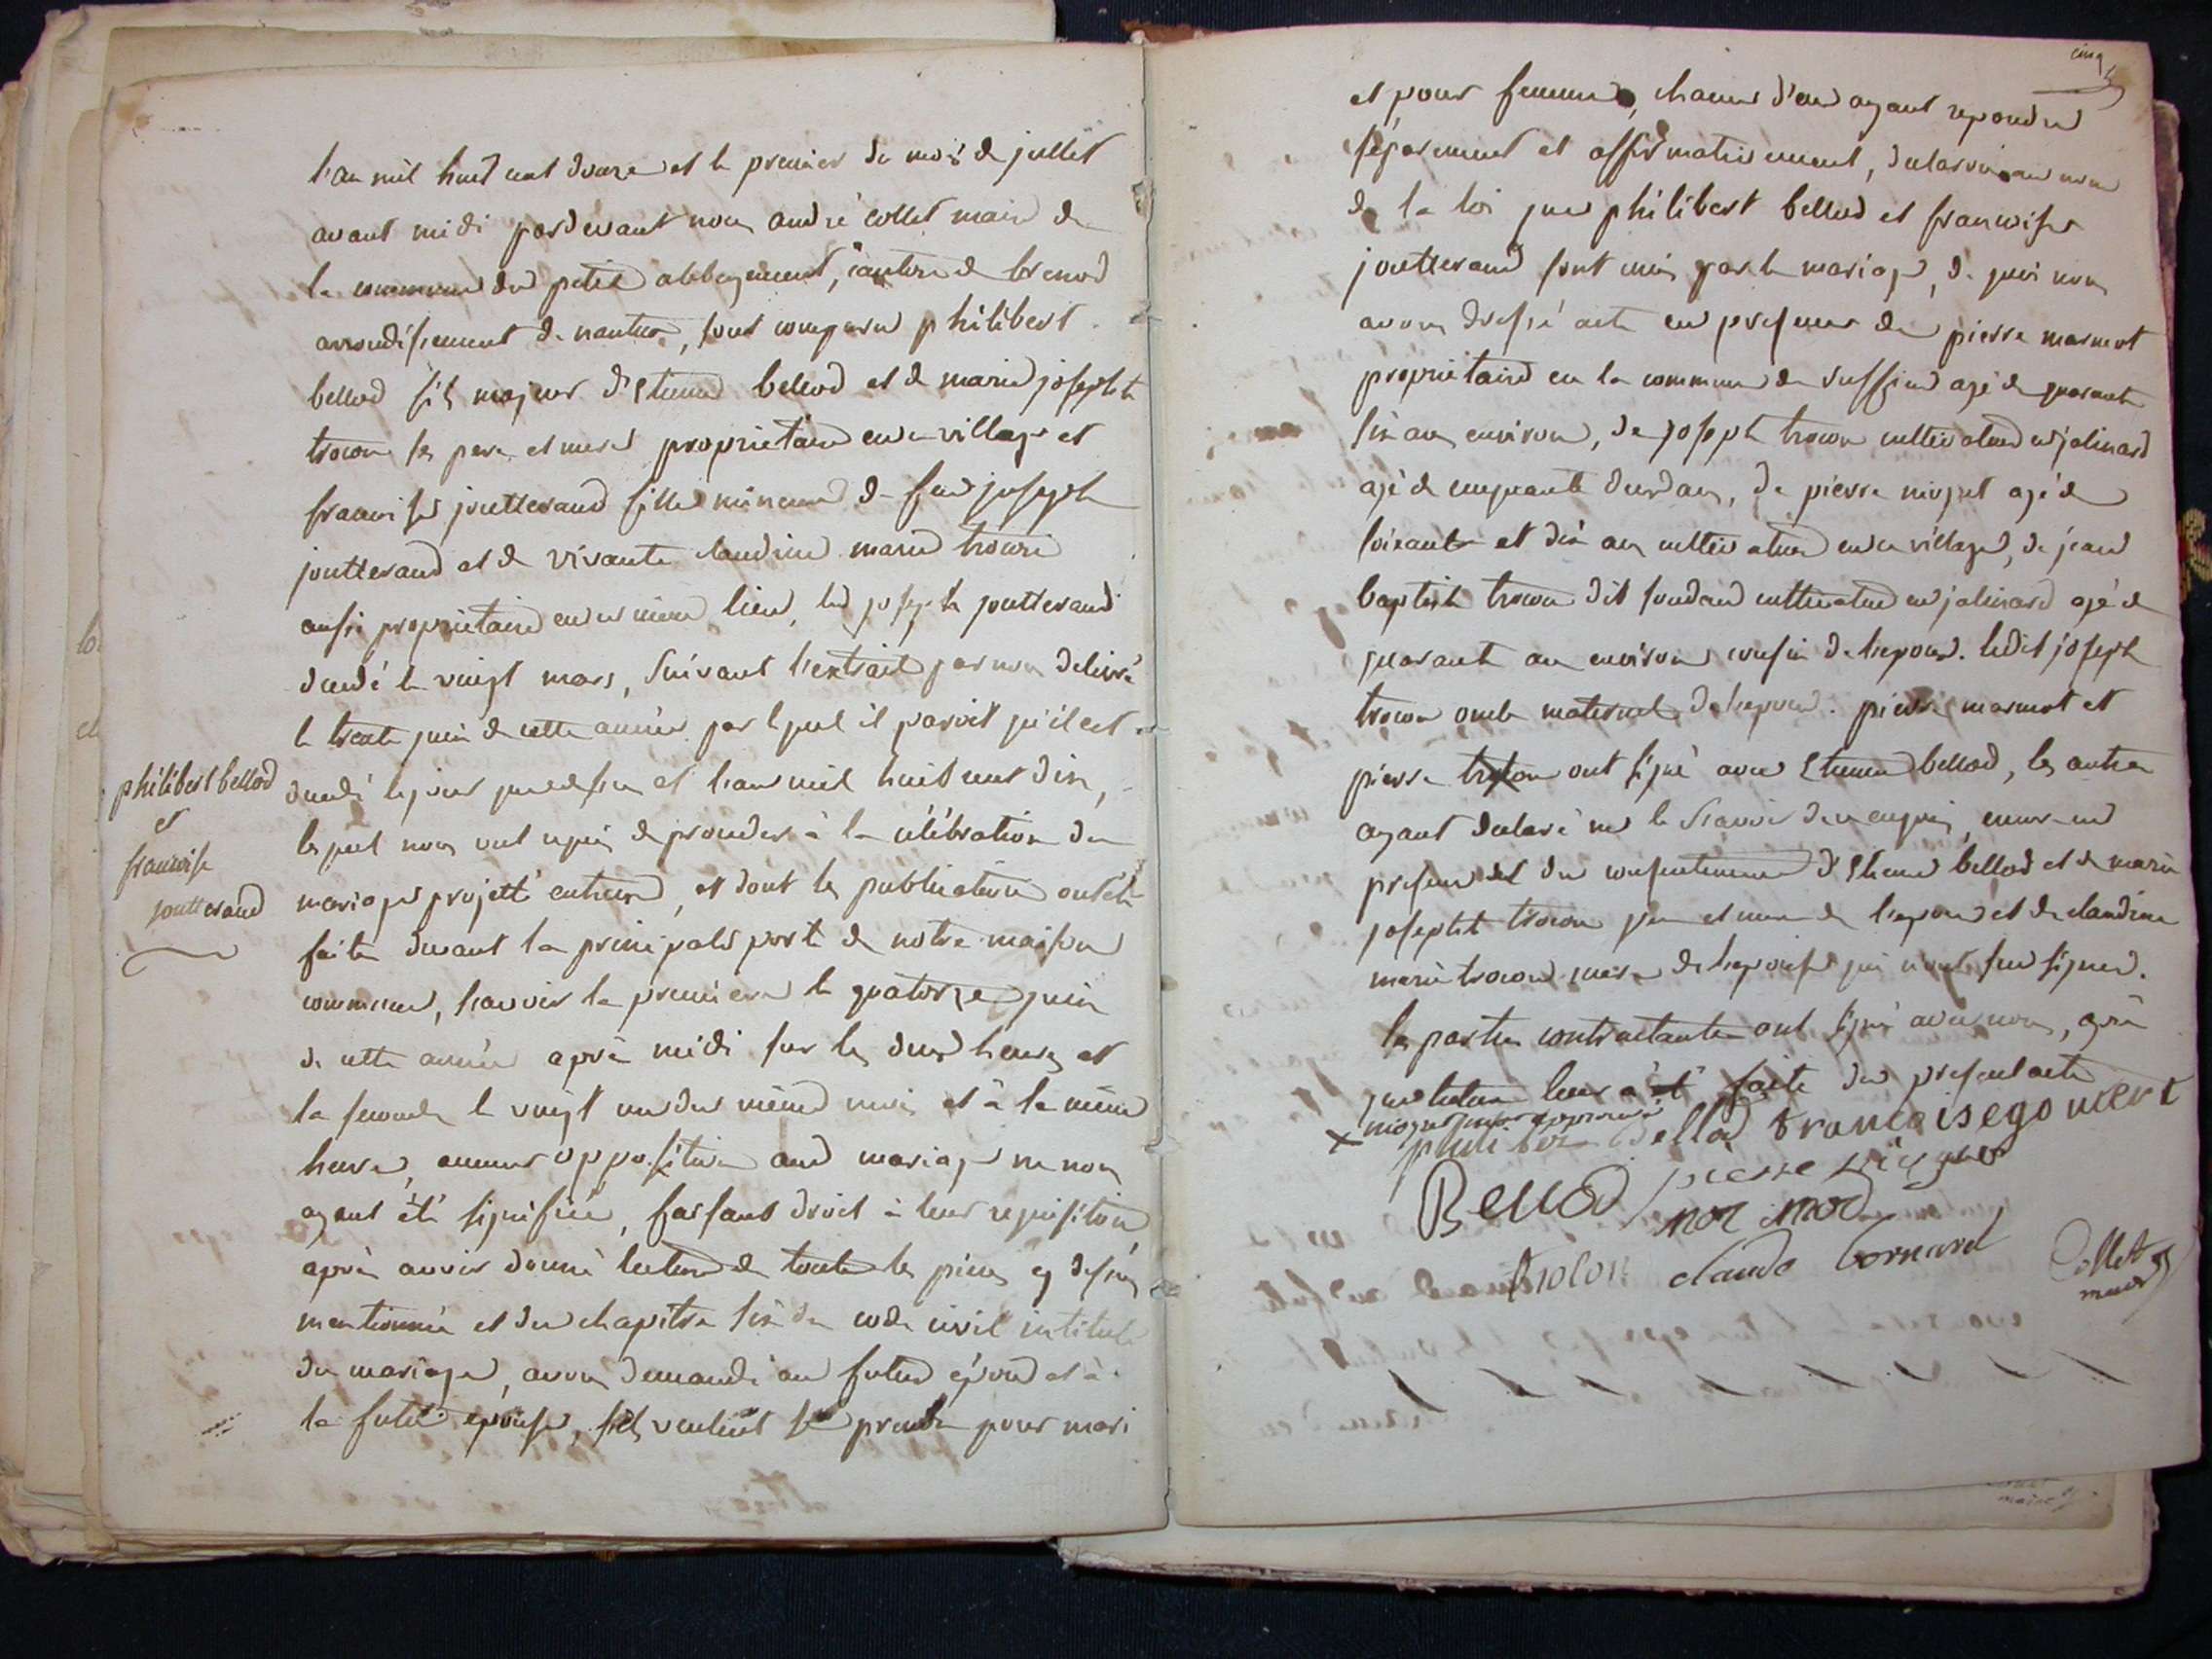 l'an mil huit cent douze et le premier du mois de juillet
avant midi pardevant nous andré collet maire de
la commune du petit abbergement, canton de brenod
arrondissement de nantua, sont comparu philibert
bellod fils majeur d'Etienne bellod et de marie josephte
trocon ses pere et mere proprietaire en ce village et
francoise joutterand fille mineure de feu joseph
joutterand et de vivante claudine marie trocon
aussi proprietaire en ce même lieu, led joseph joutterand
décédé le vingt mars, suivant l'extrait par nous delivré
le trente juin de cette année par lequel il paroit qu'il est
décédé le jour que dessus et l'an mil huit cent dix,
lesquel nous ont requis de proceder à la célébration du
mariage projetté entreux, et dont les publications ont été
faite devant la principale porte de notre maison
commune, scavoir la premiere le quatorze juin
de cette année après midi sur les deux heures et
la seconde le vingt un du même mois et à la même
heure, aucune opposition aud mariage ne nous
ayant été signifiée, faisant droit à leur requisition
après avoir donné lecture de toute les pieces cy dessus
mentionnée et du chapitre six du code civil intitulé
du mariage, avons demandé au futur époux et à
la future epouse, s'ils veulent se prendre pour mari
philibert bellod
et
francoise
joutterand
cinq
et pour femme, chacun d'eux ayant repondu
séparement et affirmativement, declarons au nom
de la loi que philibert bellod et francoise
joutterand sont unis par le mariage, de quoi nous
avons dressé acte en presence de pierre marmot
proprietaire en la commune de suffieu agé de quarante
six ans environ, de joseph trocon cultivateur en jalinard
agé de cinquante deux ans, de pierre niogret agé de
soixante et dix ans cultivateur en ce village, de jean
baptiste trocon dit cultivateur en jalinard agé de
quarante ans environ cousin de l'epoux. ledit joseph
trocon oncle maternel de l'epoux. pierre marmot et
pierre trocon ont signé avec Etienne bellod, les autres
ayant declaré ne le scavoir de ce enquis, encore en
presence et du consentement d'Etienne bellod et de marie
josephte trocon pere et mere de l'epoux et de claudine
marie trocon mere de l'epouse qui n'ont sçu signer.
les parties contractantes ont signé avec nous, après
que lecture leur a été faite du present acte
x niogret mot approuvé
philiber Bellod francoise
Bellod pierre
trocon claude Cornard
Collet
maire